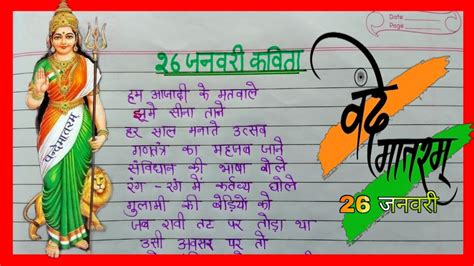 Date
Page
26 जनवरी कविता
हम आजादी के मतवाले
झूमे सीना ताने
हर साल मनाते उत्सव
गणतंत्र का महजब जाने
संविधान की भाषा बोले
रंग - रंग में कर्तव्य घोले
गुलामी की बेड़ियों को
जब रावी तट पर तोड़ा था
उसी अवसर पर तो
वन्देमातरम्
वंदे
मातरम्
26 जनवरी